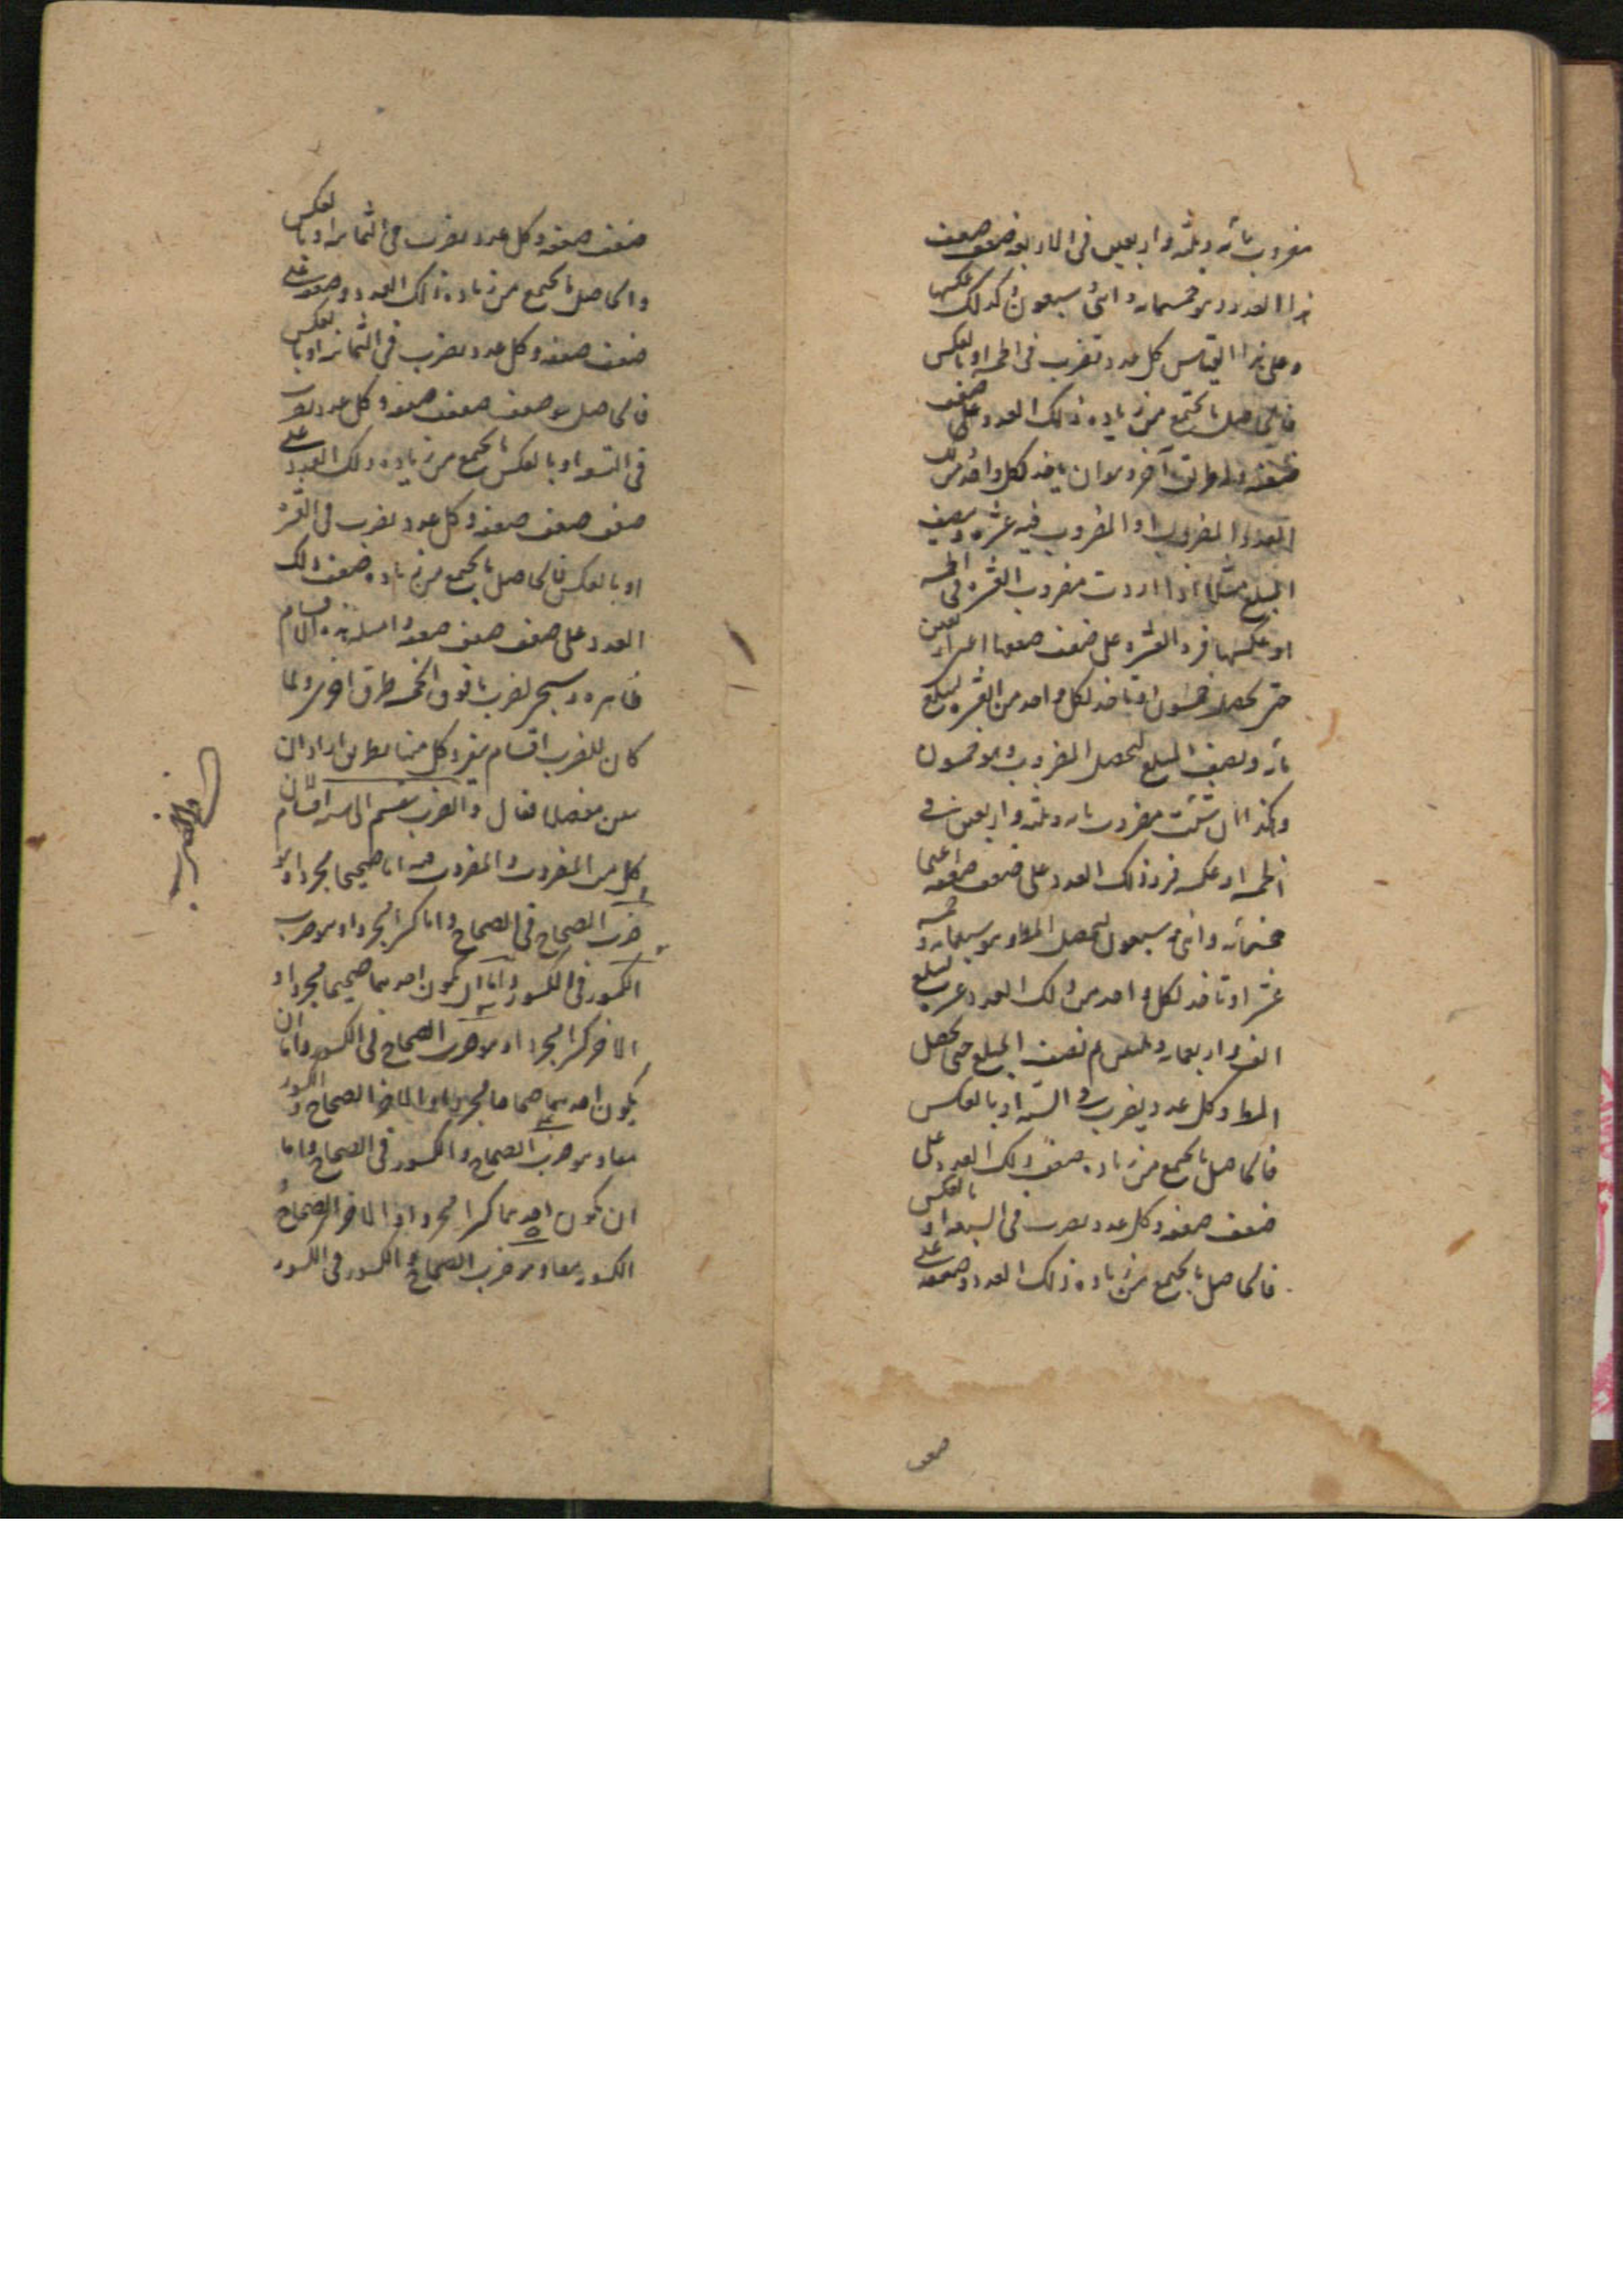 مضروب مائه وثلثه واربعين فى الاربعه ضعف ضعف
هذا العدد وهو خمسمائه واثنى وسبعون وكذلك عكسها
وعلى هذا القياس كل عدد تضرب فى الخمسه او بالعكس
فالحاصل ما يجتمع من زياده ذلك العدد على ضعف
ضعفه وله طريق آخر وهو ان ياخذ لكل واحد من ذلك
العدد المضروب او المضروب فيه عشره وينصف
المبلغ مثلا اذا اردت مضروب العشره فى الخمسه
او عكسها فزد العشره على ضعف ضعفها اعنى اربعين
حتى يحصل خمسون او تاخذ لكل واحد من العشره ليبلغ
مائه وينصف المبلغ ليحصل المضروب وهو خمسون
وكذا ان شئت مضروب مائه وثلثه واربعين فى
الخمسه او عكسه فزد ذلك العدد على ضعف ضعفه اعنى
خمسمائه واثنى وسبعون ليحصل المط وهو سبعمائه وخمسه
عشر او تاخذ لكل واحد من ذلك العدد عشره ليبلغ
الف واربعمائه وثلثين ثم نصف المبلغ حتى يحصل
المط وكل عدد يضرب فى السته او بالعكس
فالحاصل ما يجتمع من زياده ضعف ذلك العدد على
ضعف ضعفه وكل عدد يضرب فى السبعه او بالعكس
فالحاصل ما يجتمع من زياده ذلك العدد وضعفه على
ضعف
ضعف ضعفه وكل عدد يضرب فى الثمانيه او بالعكس
والحاصل ما يجتمع من زياده ذلك العدد وضعفه على
ضعف ضعفه وكل عدد يضرب فى الثمانيه او بالعكس
فالحاصل هو ضعف ضعف ضعفه وكل عدد يضرب
فى التسعه او بالعكس ما يجتمع من زياده ذلك العدد على
ضعف ضعف ضعفه وكل عدد يضرب فى العشره
او بالعكس فالحاصل ما يجتمع من زياده ضعف ذلك
العدد على ضعف ضعف ضعفه وامثله هذه الاقسام
ظاهره وسيجئ لضرب ما فوق الخمسه طرق اخرى ولما
كان للضرب اقسام يتفرد كل منها بطريق اراد ان
يبين مفصلا فقال والضرب ينقسم الى اقسام لان
كل من المضروب والمضروب فيه اما صحيحا مجردا وهو
ضرب الصحاح فى الصحاح واما كسرا مجردا وهو ضرب
الكسور فى الكسور واما ان يكون احدهما صحيحا مجردا و
الاخر كسرا مجردا وهو ضرب الصحاح فى الكسور واما ان
يكون احدهما صحاحا مجردا والاخر الصحاح والكسور
معا وهو ضرب الصحاح والكسور فى الصحاح واما
ان يكون احدهما كسرا مجردا والاخر الصحاح و
الكسور معا وهو ضرب الصحاح والكسور فى الكسور